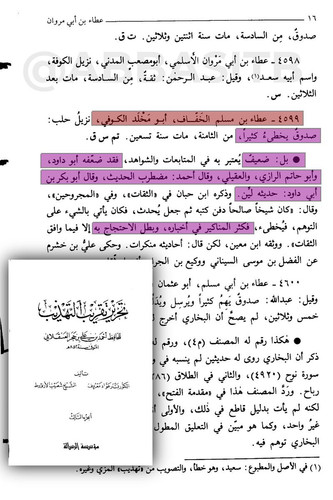 ١٦
عطاء بن أبي مروان
صدوقٌ، من السادسة، مات سنة اثنتين وثلاثين. ت ق.
٤٥٩٨ - عطاء بن أبي مَرْوان الأسلمي، أبومصعب المدني، نزيل الكوفة،
واسم أبيه سعد(١)، وقيل: عبد الرحمٰن: ثقةٌ، من السادسة، مات بعد
الثلاثين. س.
٤٥٩٩ - عطاء بن مسلم الخَفَّاف، أبو مَخْلَد الكوفي، نزيل حلب:
صدوق يخطىءُ كثيراً، من الثامنة، مات سنة تسعين. تم س ق.
● بل: ضعيفٌ يُعتبر به في المتابعات والشواهد، فقد ضعّفه أبو داود،
وأبو حاتم الرازي، والعقيلي، وقال أحمد: مضطرب الحديث، وقال أبو بكر بن
أبي داود: حديثه ليِّن. وذكره ابن حبان في «الثقات»، وفي «المجروحين»،
وقال: «كان شيخاً صالحاً دفن كتبه ثم جعل يُحدث، فكان يأتي بالشيء على
التوهم، فيُخطىء، فكثر المناكير في أخباره، وبطل الاحتجاج به إلا فيما
الثقات». ووثقه ابن معين، لكن قال: أحاديثه منكرات. وحكى عليُّ بن خشرم
عن الفضل بن موسى السيناني ووكيع بن الجراح
٤٦٠٠ - عطاء بن أبي مسلم، أبو عثمان
وقيل: عبدالله: صدوقٌ يَهِمُ كثيراً ويُرسِل ويُدَلِّ
خمس وثلاثين، لم يصحَّ أن البخاري أخرج
● هكذا رقم له المصنف (م٤)، ورد
ذكر أن البخاري روى له حديثين لم ينسبه في
سورة نوح (٤٩٢٠)، والثاني في الطلاق (٥٢٨٦
رباح. وردَّ المصنف هذا في «مقدمة الفتح»،
لكنه لم يأت بدليل قاطع في ذلك، والأولى
غيرُ واحد، وكما هو مبيّن في التعليق المطول
البخاري توهم فيه.
(١) في الأصل والمطبوع: سعيد، وهو خطأ، والتصويب من «تهذيب» المزي وغيره.
تحرير تقريب التهذيب
للحافظ أحمد بن علي بن حجر العسقلاني
تأليف
الدكتور بشار عواد معروف
الشيخ شعيب الأرنؤوط
الجزء الثالث
مؤسسة الرسالة